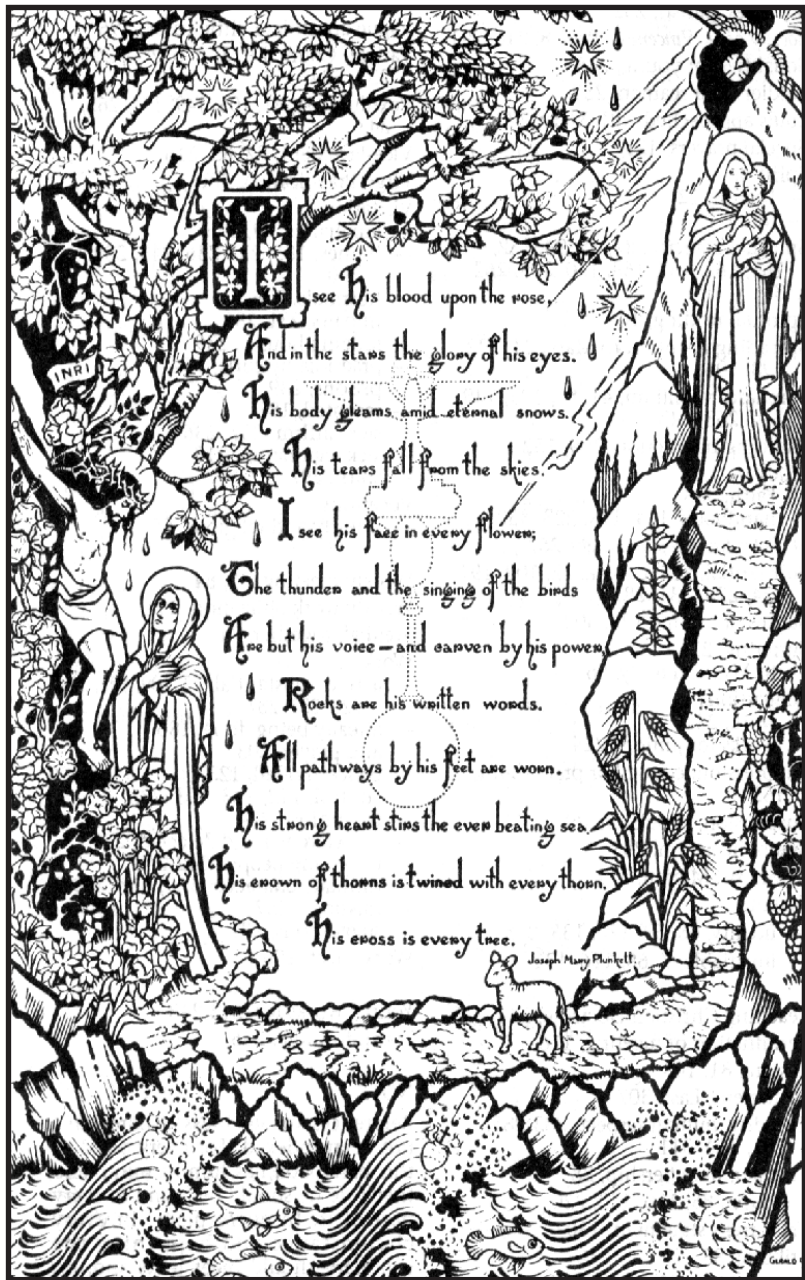 I see His blood upon the rose,
And in the stars the glory of his eyes.
His body gleams amid eternal snows.
His tears fall from the skies.
I see his face in every flower;
The thunder and the singing of the birds
Are but his voice — and carven by his power,
Rocks are his written words.
All pathways by his feet are worn.
His strong heart stirs the ever beating sea.
His crown of thorns is twined with every thorn.
His cross is every tree.
Joseph Mary Plunkett.
INRI